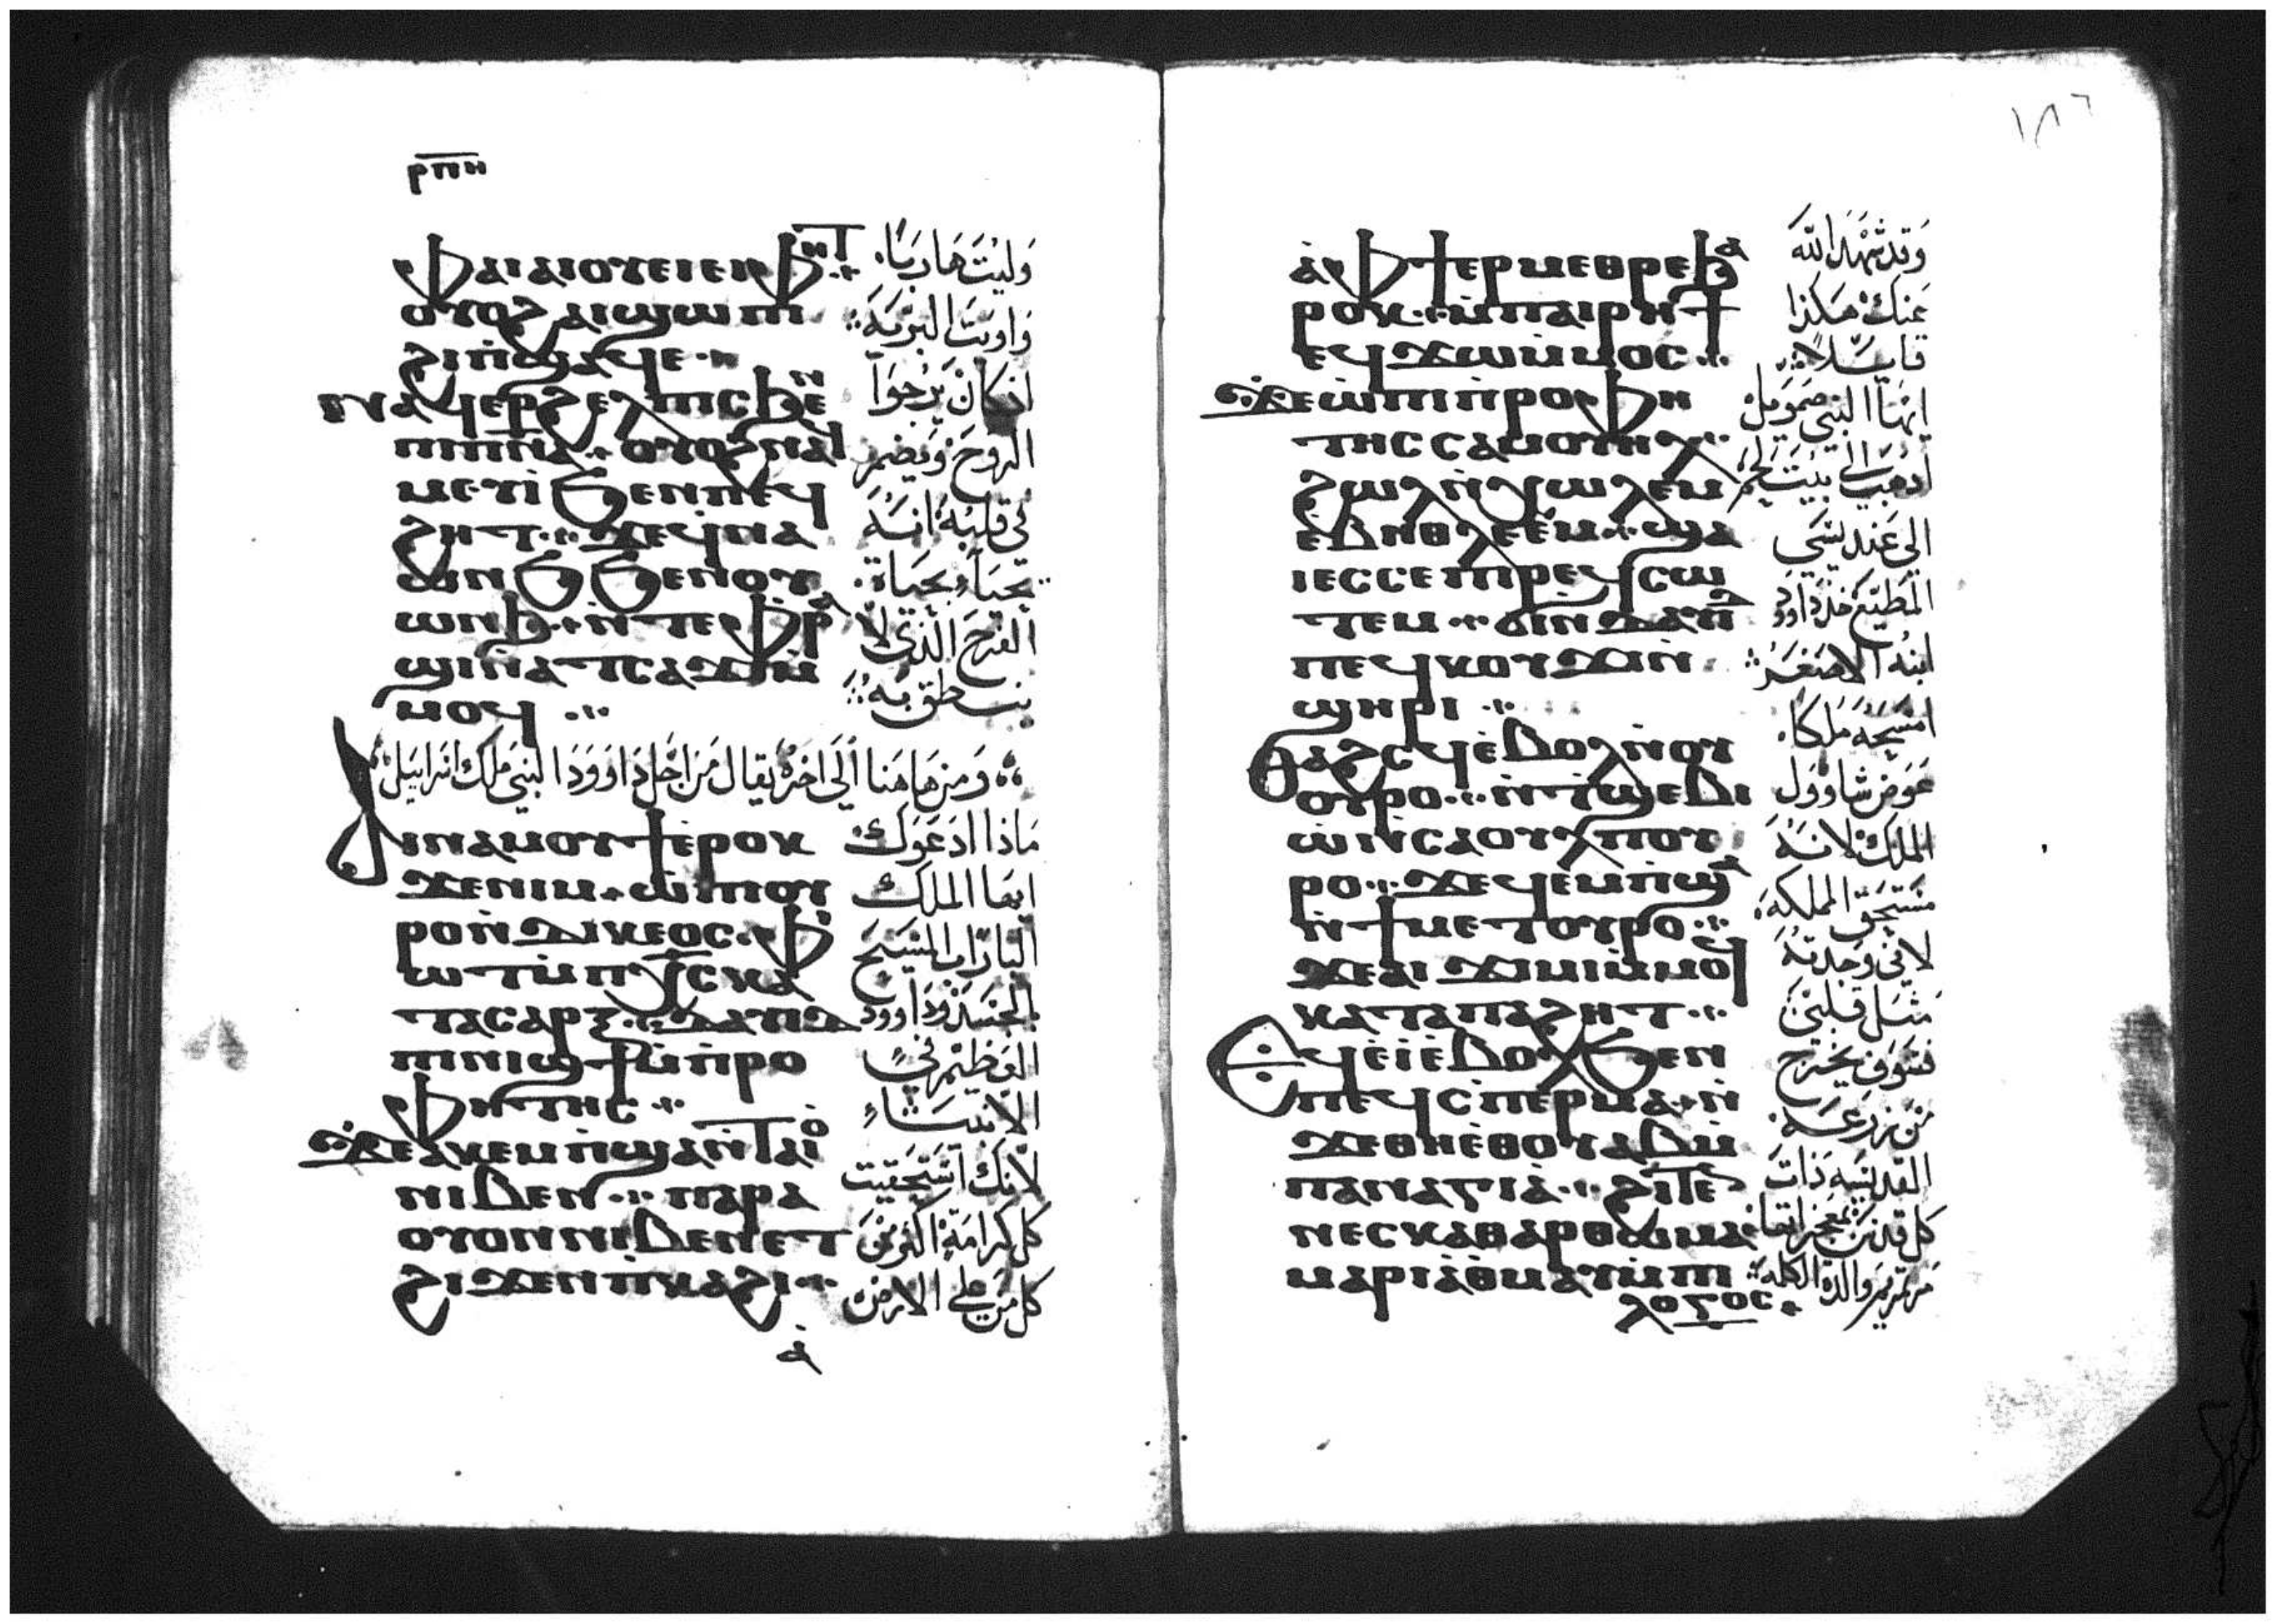 ⲣⲡⲏ
ⲫⲁⲓ ⲁⲓⲟⲩⲉⲓ ⲉⲓⲫⲏⲧ
ⲟⲩⲟϩ ⲁⲓϣⲱⲡⲓ
ϩⲓ ⲡ̀ϣⲁϥⲉ
ⲛⲁϥⲉⲣϩⲉⲗⲡⲓⲥ ϧⲉⲛ
ⲡⲓⲡ̅ⲛ̅ⲁ̅ ⲟⲩⲟϩ ⲛⲁϥ
ⲙⲉⲩⲓ̀ ϧⲉⲛ ⲡⲉϥ
ϩⲏⲧ ϫⲉ ϥ̀ⲛⲁ
ⲱⲛϧ ϧⲉⲛ ⲟⲩ
ⲱⲛϧ ⲛ̀ⲧⲉ ⲫⲣⲁ
ϣⲓ ⲛ̀ⲁⲧⲥⲁϫⲓ ⲙ̀
ⲙⲟϥ
وليت هاربا
واويت البرية
اذ كان يرجوا
الروح ويضمر
في قلبه انه
يحيا بحياة
الفرح الذي لا
ينطق به
ومن هاهنا الي اخره يقال من اجل داوود النبي ملك اسراييل
ⲁⲓⲛⲁⲙⲟⲩϯ ⲉ̀ⲣⲟⲕ
ϫⲉ ⲛⲓⲙ ⲱ̀ ⲡⲟⲩ
ⲣⲟ ⲛ̀ⲇⲓⲕⲉⲟⲥ ⲫ̀ⲓ
ⲱⲧ ⲙ̀ⲡⲭ̅ⲥ̅ ⲕⲁ
ⲧⲁ ⲥⲁⲣⲝ ⲇⲁⲩⲓⲇ
ⲡⲓⲛⲓϣϯ ⲙ̀ⲡⲣⲟ
ⲫⲏⲧⲏⲥ
ϫⲉ ⲁⲕⲉⲙⲡ̀ϣⲁ ⲛ̀ⲧⲁⲓⲟ
ⲛⲓⲃⲉⲛ ⲡⲁⲣⲁ
ⲟⲩⲟⲛ ⲛⲓⲃⲉⲛ ⲉⲧ
ϩⲓϫⲉⲛ ⲡⲕⲁϩⲓ
ماذا ادعوك
ايها الملك
البار اب المسيح
بالجسد داوود
العظيم في
الانبياء
لانك استحقيت
كل كرامة اكثر من
كل من علي الارض
ⲁ̀
١٨٦
ⲁ̀ⲫϯ ⲉⲣⲙⲉⲑⲣⲉ ϧⲁ
ⲣⲟⲕ ⲙ̀ⲡⲁⲓⲣⲏϯ
ⲉϥϫⲱ ⲙ̀ⲙⲟⲥ
ϫⲉ ⲱ̀ ⲡⲓⲡ̀ⲣⲟⲫⲏ
ⲧⲏⲥ ⲥⲁⲙⲟⲩⲏⲗ
ϩⲱⲗ ⲛ̀ⲭⲱⲗⲉⲙ
ⲉ̀ⲃⲏⲑⲗⲉⲉⲙ ϣⲁ
ⲓⲉⲥⲥⲉ ⲡⲓⲣⲉϥⲥⲱ
ⲧⲉⲙ ϭⲓ ⲛ̀ⲇⲁⲩⲓⲇ
ⲡⲉϥⲕⲟⲩϫⲓ ⲛ̀
ϣⲏⲣⲓ
ⲑⲁϩⲥϥ ⲉ̀ⲃⲟⲗ ⲛ̀ⲟⲩ
ⲟⲩⲣⲟ ⲛ̀ⲧϣⲉⲃⲓ
ⲱ̀ ⲛ̀ⲥⲁⲟⲩⲗ ⲡⲟⲩ
ⲣⲟ ϫⲉ ϥⲉⲙⲡϣⲁ
ⲛ̀ϯⲙⲉⲧⲟⲩⲣⲟ
ϫⲉ ⲁⲓϫⲓⲙⲓ ⲙ̀ⲙⲟϥ
ⲕⲁⲧⲁ ⲡⲁϩⲏⲧ
ⲉϥⲉ̀ⲓ̀ ⲉ̀ⲃⲟⲗ ϧⲉⲛ
ⲡⲉϥⲥⲡⲉⲣⲙⲁ ⲛ̀
ϫⲉ ⲑⲏⲉ̀ⲑⲟⲩⲁⲃ ⲙ̀
ⲡⲁⲛⲁⲅⲓⲁ̀ ϩⲓⲧⲉ
ⲛⲉⲥⲕⲁⲑⲁⲣⲑⲱⲙⲁ
ⲙⲁⲣⲓⲁ̀ ⲑⲙⲁⲩ ⲙ̀ⲡⲓ
ⲗⲟⲅⲟⲥ
وقد شهد الله
عنك هكذا
قايلا
ايها النبي صمويل
اذهب الي بيت لحم
الي عند يسي
المطيع خذ داوود
ابنه الاصغر
امسحه ملكا
عوض شاوول
الملك لانه
مستحق المملكة
لاني وجدته
مثل قلبي
فسوف يخرج
من زرعه
القديسة ذات
كل قدس
مرتمريم والدة الكلمة